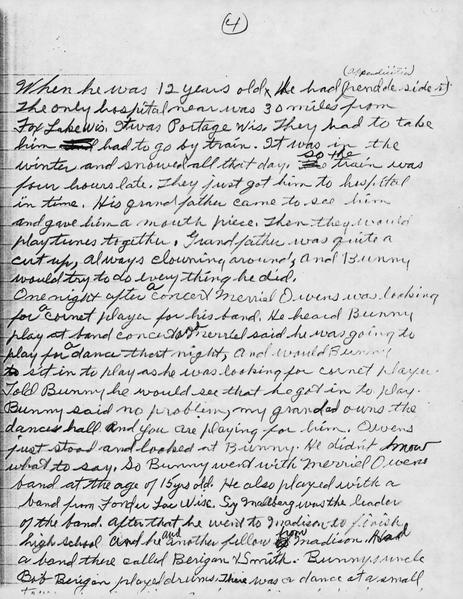 (4)
(appendicitis)
When he was 12 years old, He had
The only hospital near was 30 miles from
Fox Lake Wis. It was Portage Wis. They had to take
him had to go by train. It was in the
winter and snowed all that day. so the train was
four hours late. They just got him to hospital
in time. His grandfather came to see him
and gave him a mouth piece. Then they would
play tunes together. Grandfather was quite a
cut up, always clowning around, and Bunny
would try to do everything he did.
One night after a concert Merril Owens was looking
for a cornet player for his band. He heard Bunny
play at band concert. Merril said he was going to
play for a dance that night, and would Bunny
to sit in to play as he was looking for cornet player.
Told Bunny he would see that he got in to play.
Bunny said no problem, my grandad owns the
dance hall and you are playing for him. Owens
just stood and looked at Bunny. He didn't know
what to say. So Bunny went with Merril Owens
band at the age of 15 yrs old. He also played with a
band from Fondu Lac Wisc. Sy Mallberg was the leader
of the band. After that he went to Madison to finish
high school and he and another fellow from Madison Had
a band there called Berigan & Smith. Bunny's uncle
Bob Berigan played drums. There was a dance at a small